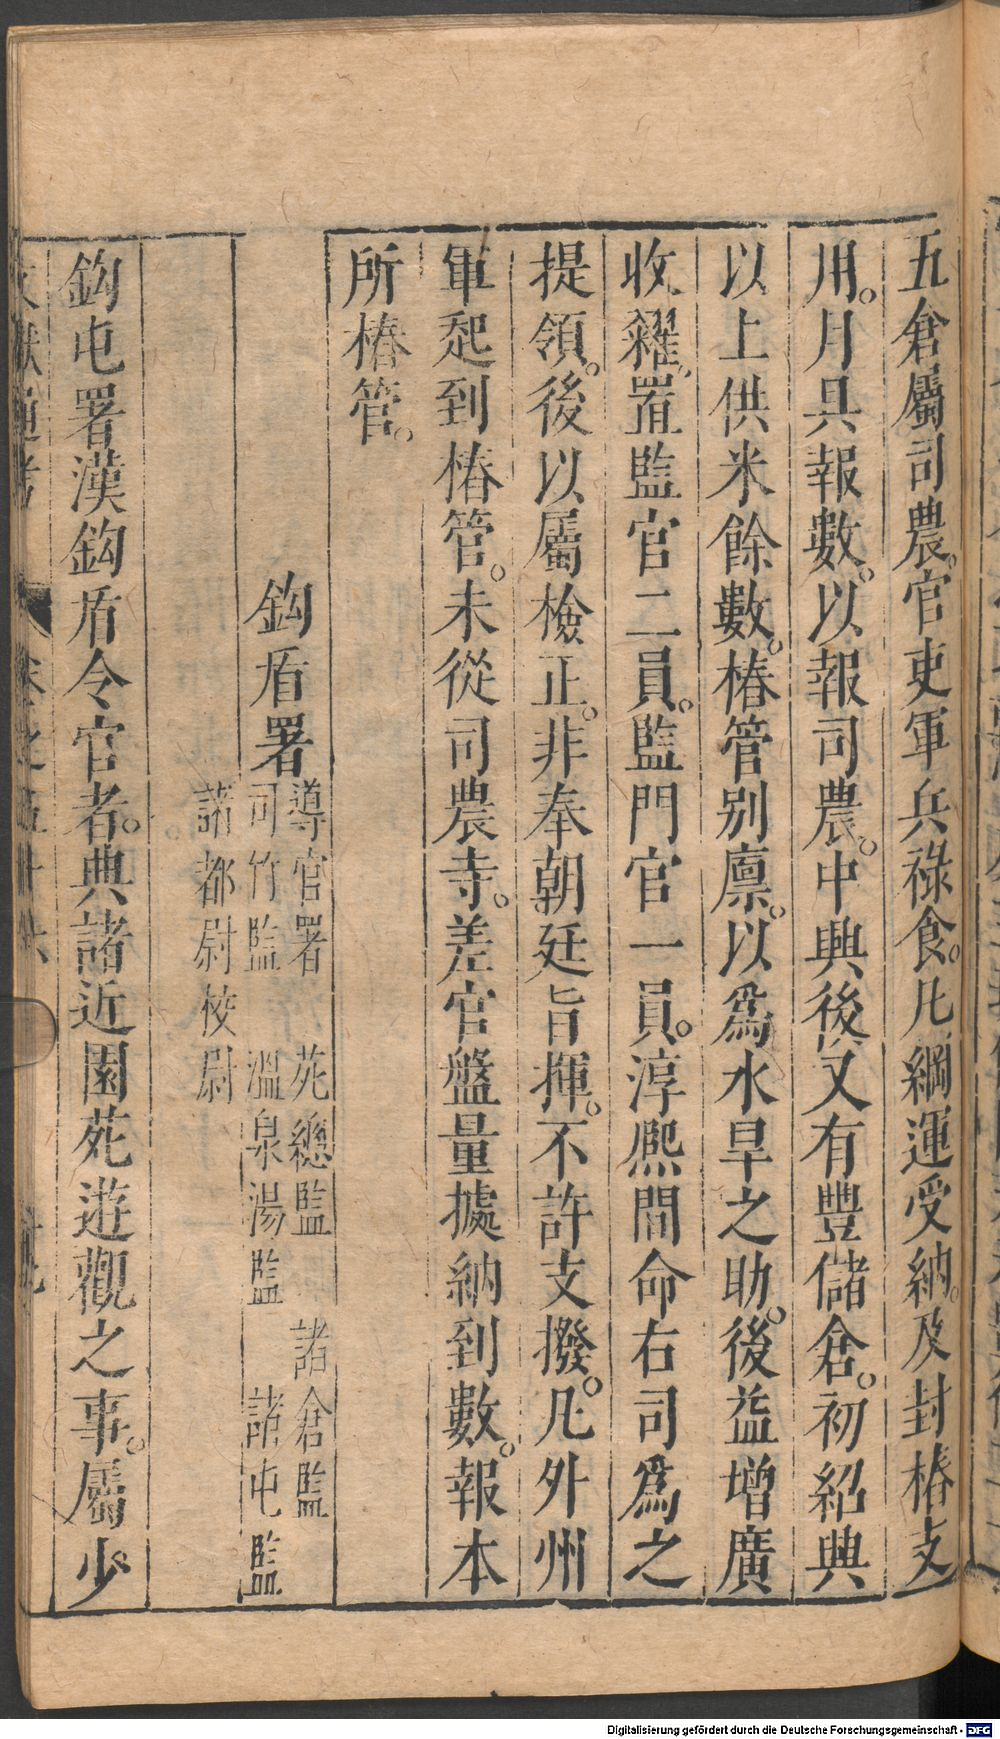 五倉屬司農。官吏軍兵祿食。凡綱運受納。及封樁支
用。月具報數。以報司農。中興後又有豐儲倉。初紹興
以上供米餘數。樁管別廩。以爲水旱之助。後益增廣
收糴。置監官二員。監門官一員。淳熈間命右司爲之
提領。後以屬檢正。非奉朝廷旨揮。不許支撥。凡外州
軍起到樁管。未從司農寺。差官盤量據納到數。報本
所樁管。
鈎盾署
導官署 苑總監 諸倉監
司竹監 溫泉湯監 諸屯監
諸都尉校尉
鈎屯署漢鈎盾令官者。典諸近園苑遊觀之事。屬少
文獻通考 卷之五十六
Digitalisierung gefördert durch die Deutsche Forschungsgemeinschaft - DFG